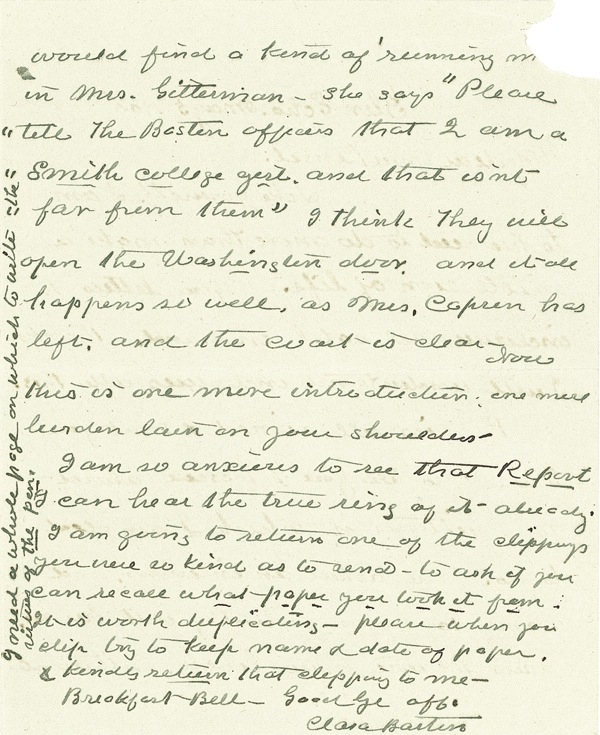 would find a kind of "running m
in Mrs. Gitterman - she says "Please
"tell the Boston affairs that I am a
Smith college girl. and that isn't
far from them" I think they will
open the Washington door. and it all
happens so well, as Mrs. Capron has
left. and the coast is clear - Now
this is one more introduction. one more
burden lain on your shoulders -
I am so anxious to see that Report
can hear the true ring of it already.
I am going to return one of the clippings
you were so kind as to send - to ask if you
can recall what paper you took it from.
It is worth duplicating - please when you
clip try to keep name & date of paper.
& kindly return that clipping to me -
Breakfast Bell - Good bye off.
Clara Barton
I need a whole page on which to write "the"
of the pen.